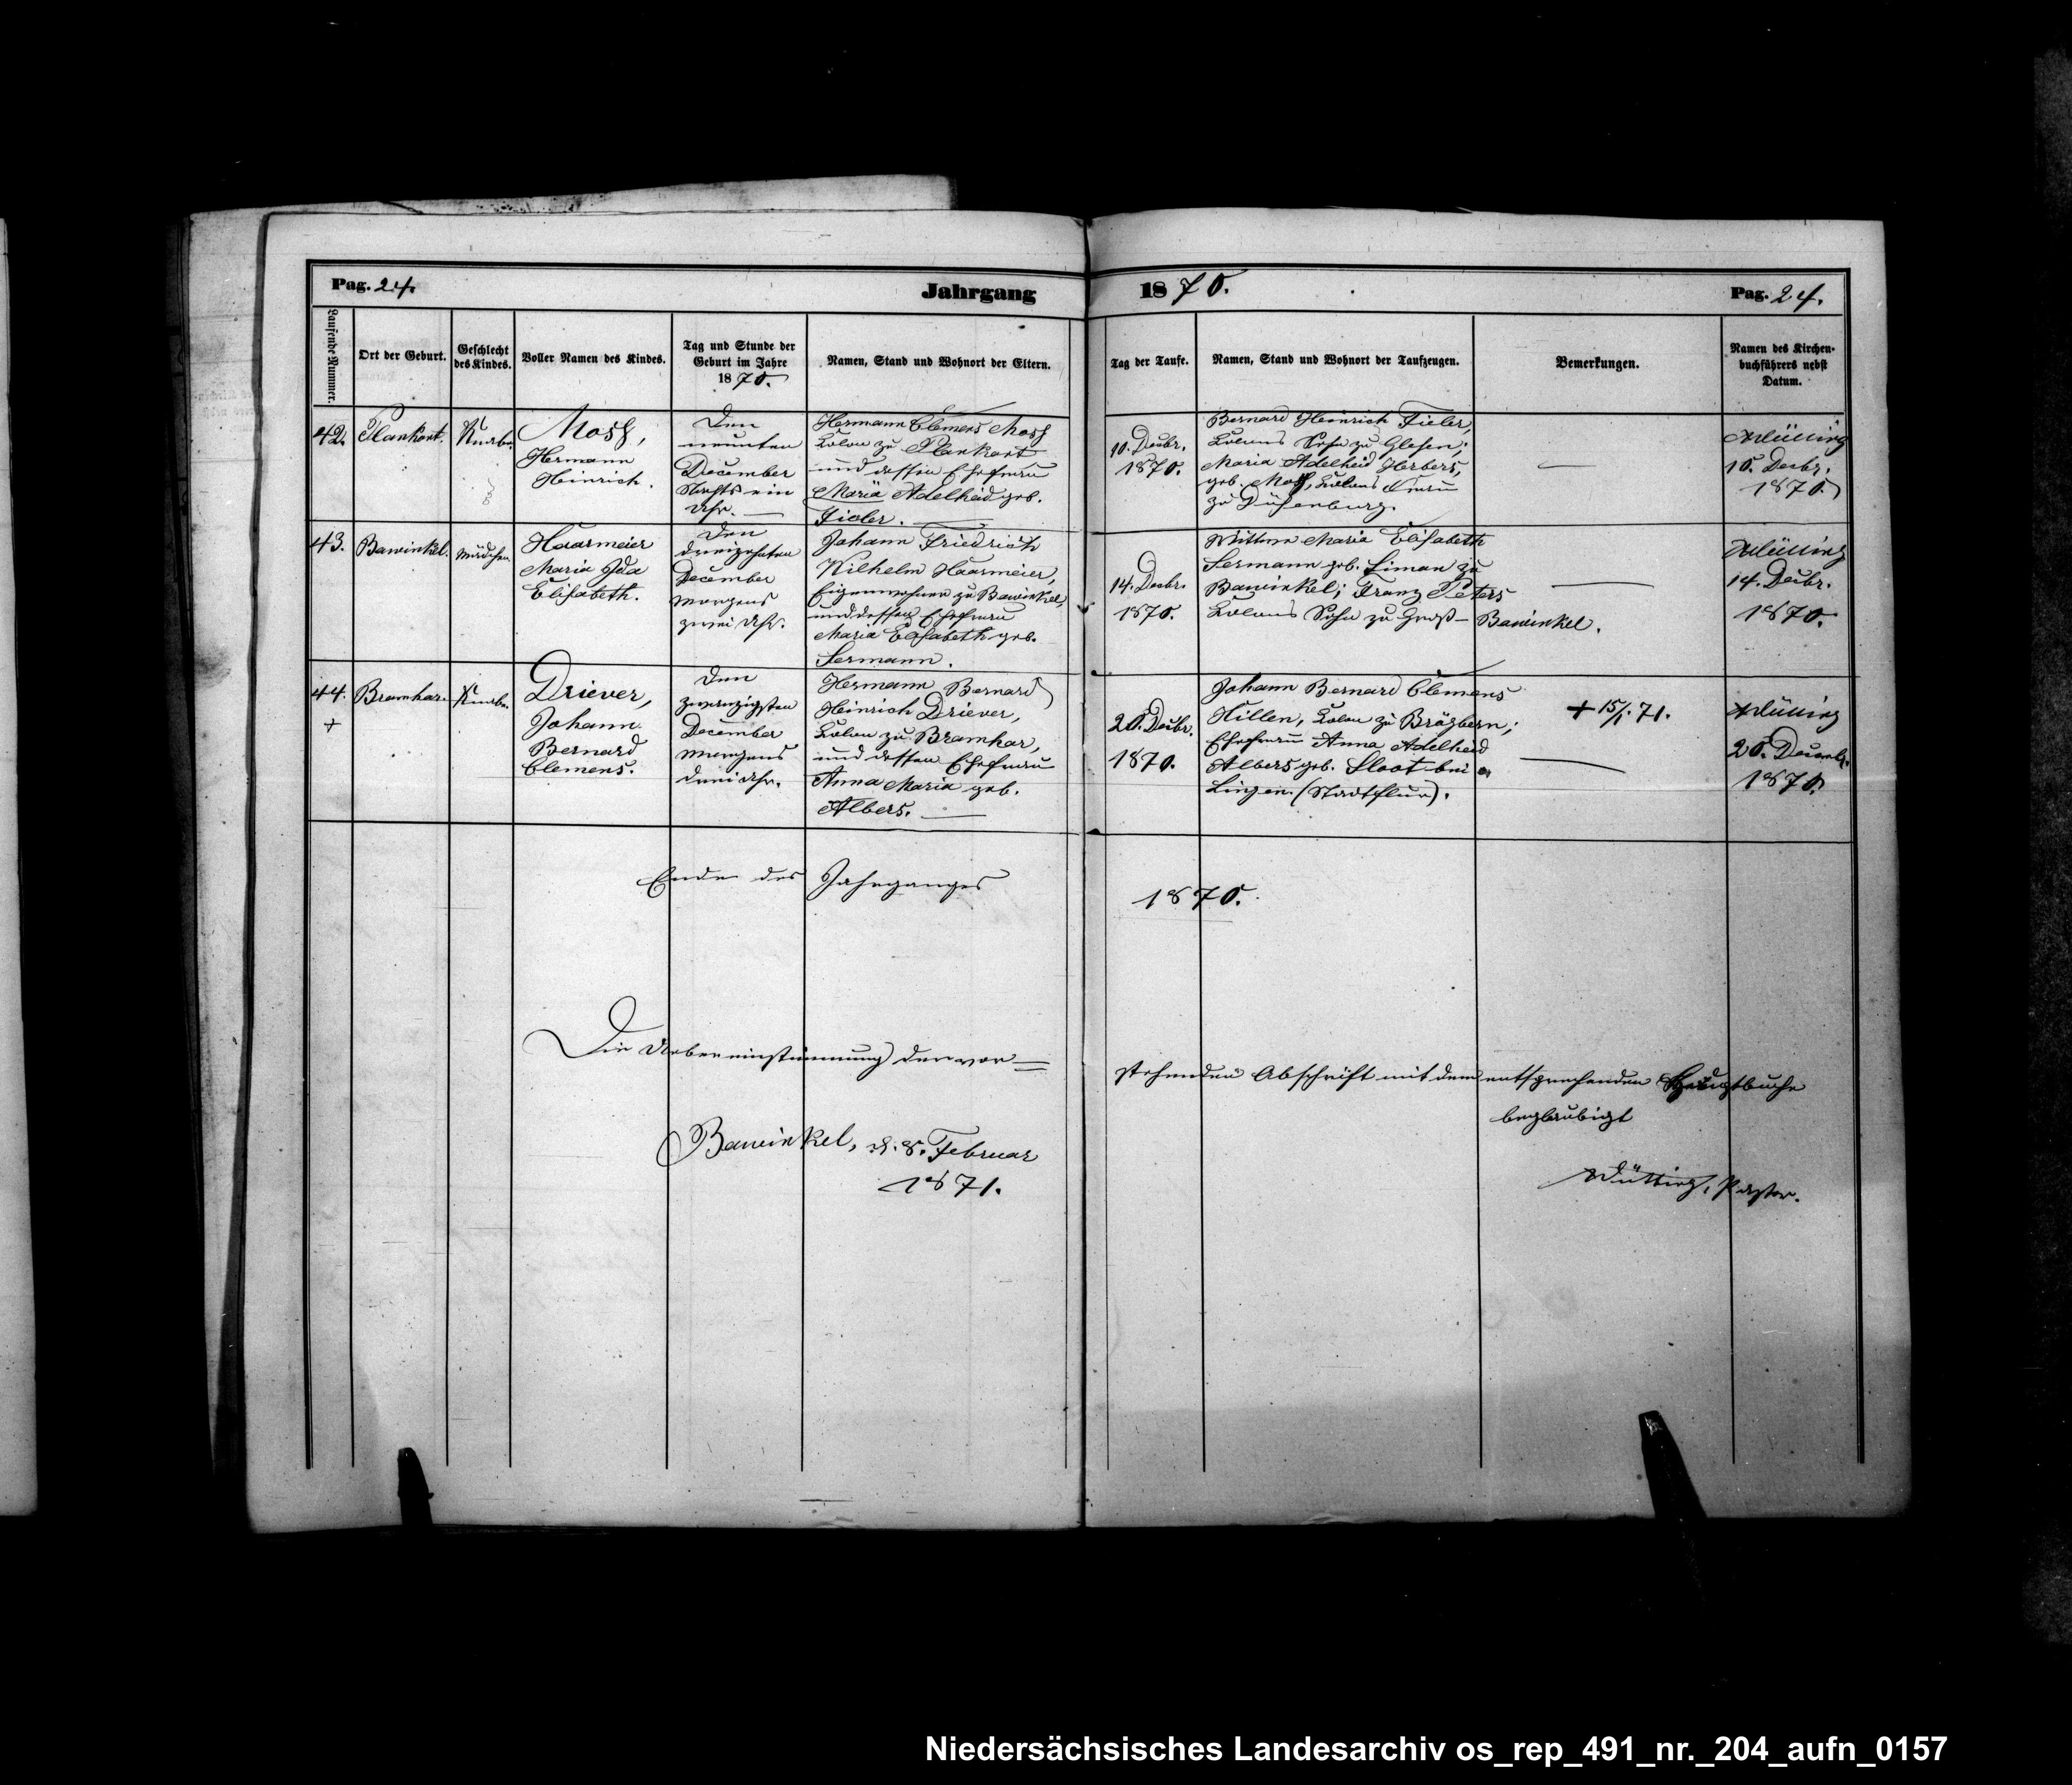 Pag. 24.
Jahrgang
1870.
Pag. 24.
Laufende Nummer.
Ort der Geburt.
Geschlecht
des Kindes.
Voller Namen des Kindes.
Tag und Stunde der
Geburt im Jahre
1870.
Namen, Stand und Wohnort der Eltern.
Tag der Taufe.
Namen, Stand und Wohnort der Taufzeugen.
Bemerkungen.
Namen des Kirchen-
buchführers nebst
Datum.
42.
Plankort.
Knabe.
Hermann
Heinrich.
Den
neunten
December
Nachts ein
Uhr.
Hermann Clemens
Kolon zu Plankort
und dessen Ehefrau
Maria Adelheid geb.
Fieler.
10. Decbr.
1870.
Bernard Heinrich Fieler,
Kolons Sohn zu Glesen;
Maria Adelheid Herbers,
geb. Kolons Frau
zu
—
10. Decbr.
1870
43.
Bawinkel.
Mädchen.
Haarmeier
Maria Ida
Elisabeth.
Den
dreizehnten
December
Morgens
zwei Uhr.
Johann Friedrich
Wilhelm Haarmeier,
Eigenwohner zu Bawinkel,
und dessen Ehefrau
Maria Elisabeth geb.
Sermann.
14. Decbr.
1870.
Wittwe Maria Elisabeth
Sermann geb. Liman zu
Bawinkel; Franz Peters
Kolons Sohn zu Groß-Bawinkel.
—
14. Decbr.
1870.
44.
+
Bramhar.
Knabe.
Driever,
Johann
Bernard
Clemens.
Den
zwanzigsten
December
Morgens
drei Uhr.
Hermann Bernard
Heinrich Driever,
Kolon zu Bramhar,
und dessen Ehefrau
Anna Maria geb.
Albers.
20. Decbr.
1870.
Johann Bernard Clemens
Hillen, Kolon zu Brögbern;
Ehefrau Anna Adelheid
Albers geb. Sloot bei
Lingen (Stadtflur).
+ 15/1. 71.
—
20. Decemb.
1870.
Ende des Jahrganges 1870.
Die Uebereinstimmung der vor=
stehenden Abschrift mit dem entsprechenden Hauptbuche
beglaubigt
Bawinkel, d. 8. Februar
1871.
Pastor.
Niedersächsisches Landesarchiv os_rep_491_nr._204_aufn_0157